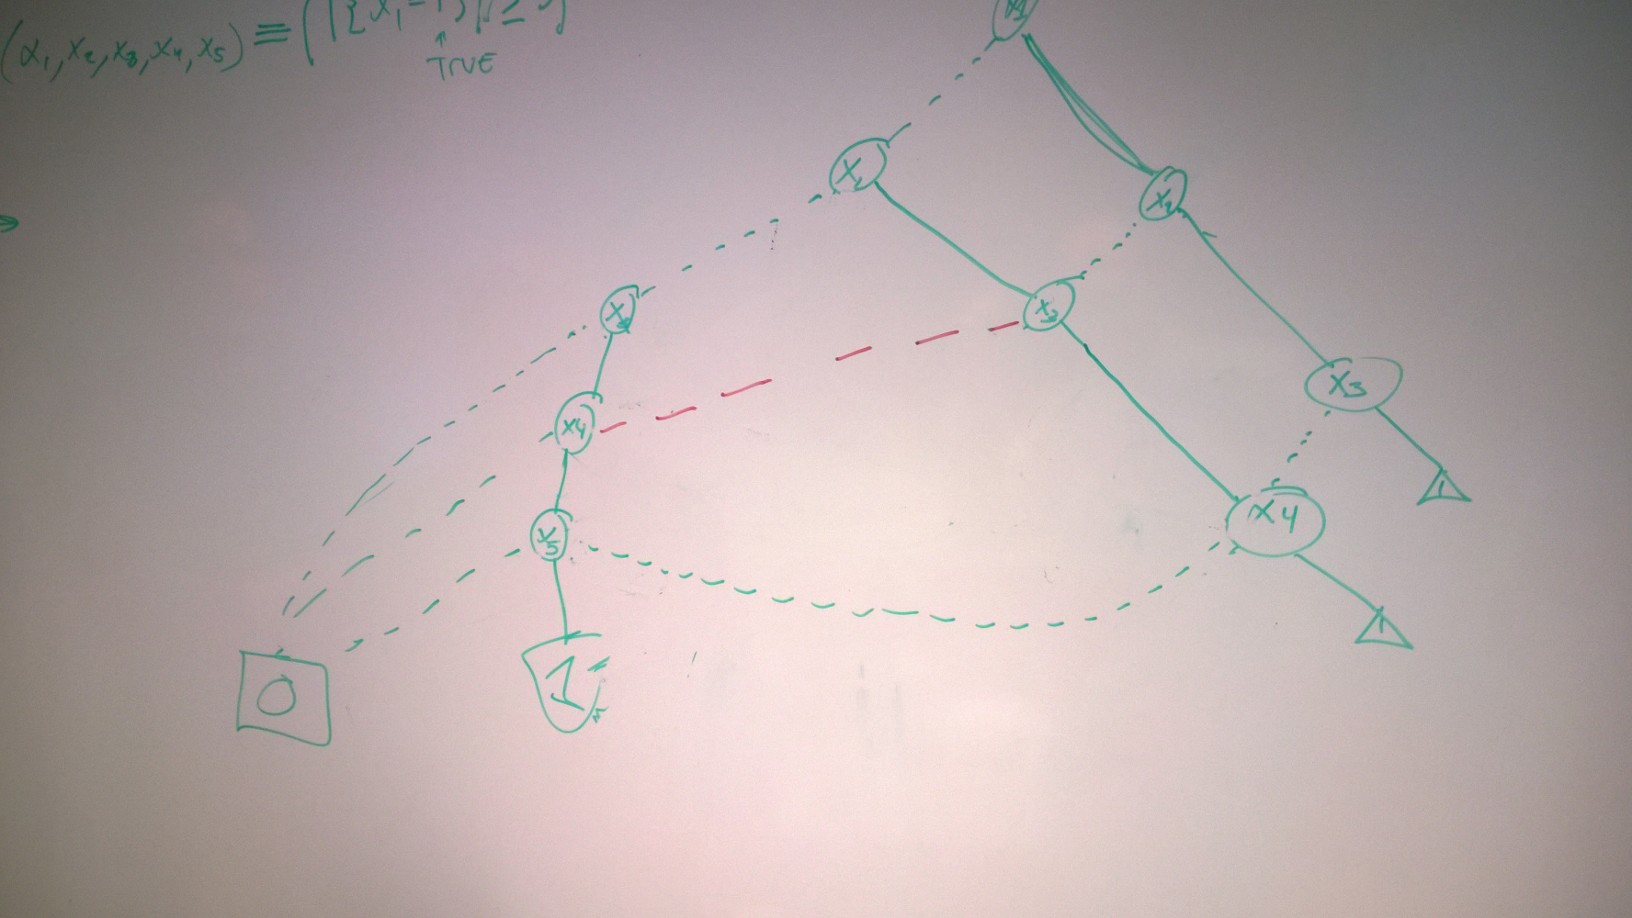 (x₁,x₂,x₃,x₄,x₅) ≡ (|{xᵢ=1}| ≥ 3)
↑
TRUE
x1
x₂
x₃
x₃
x3
x4
x4
x5
0
1
1
1